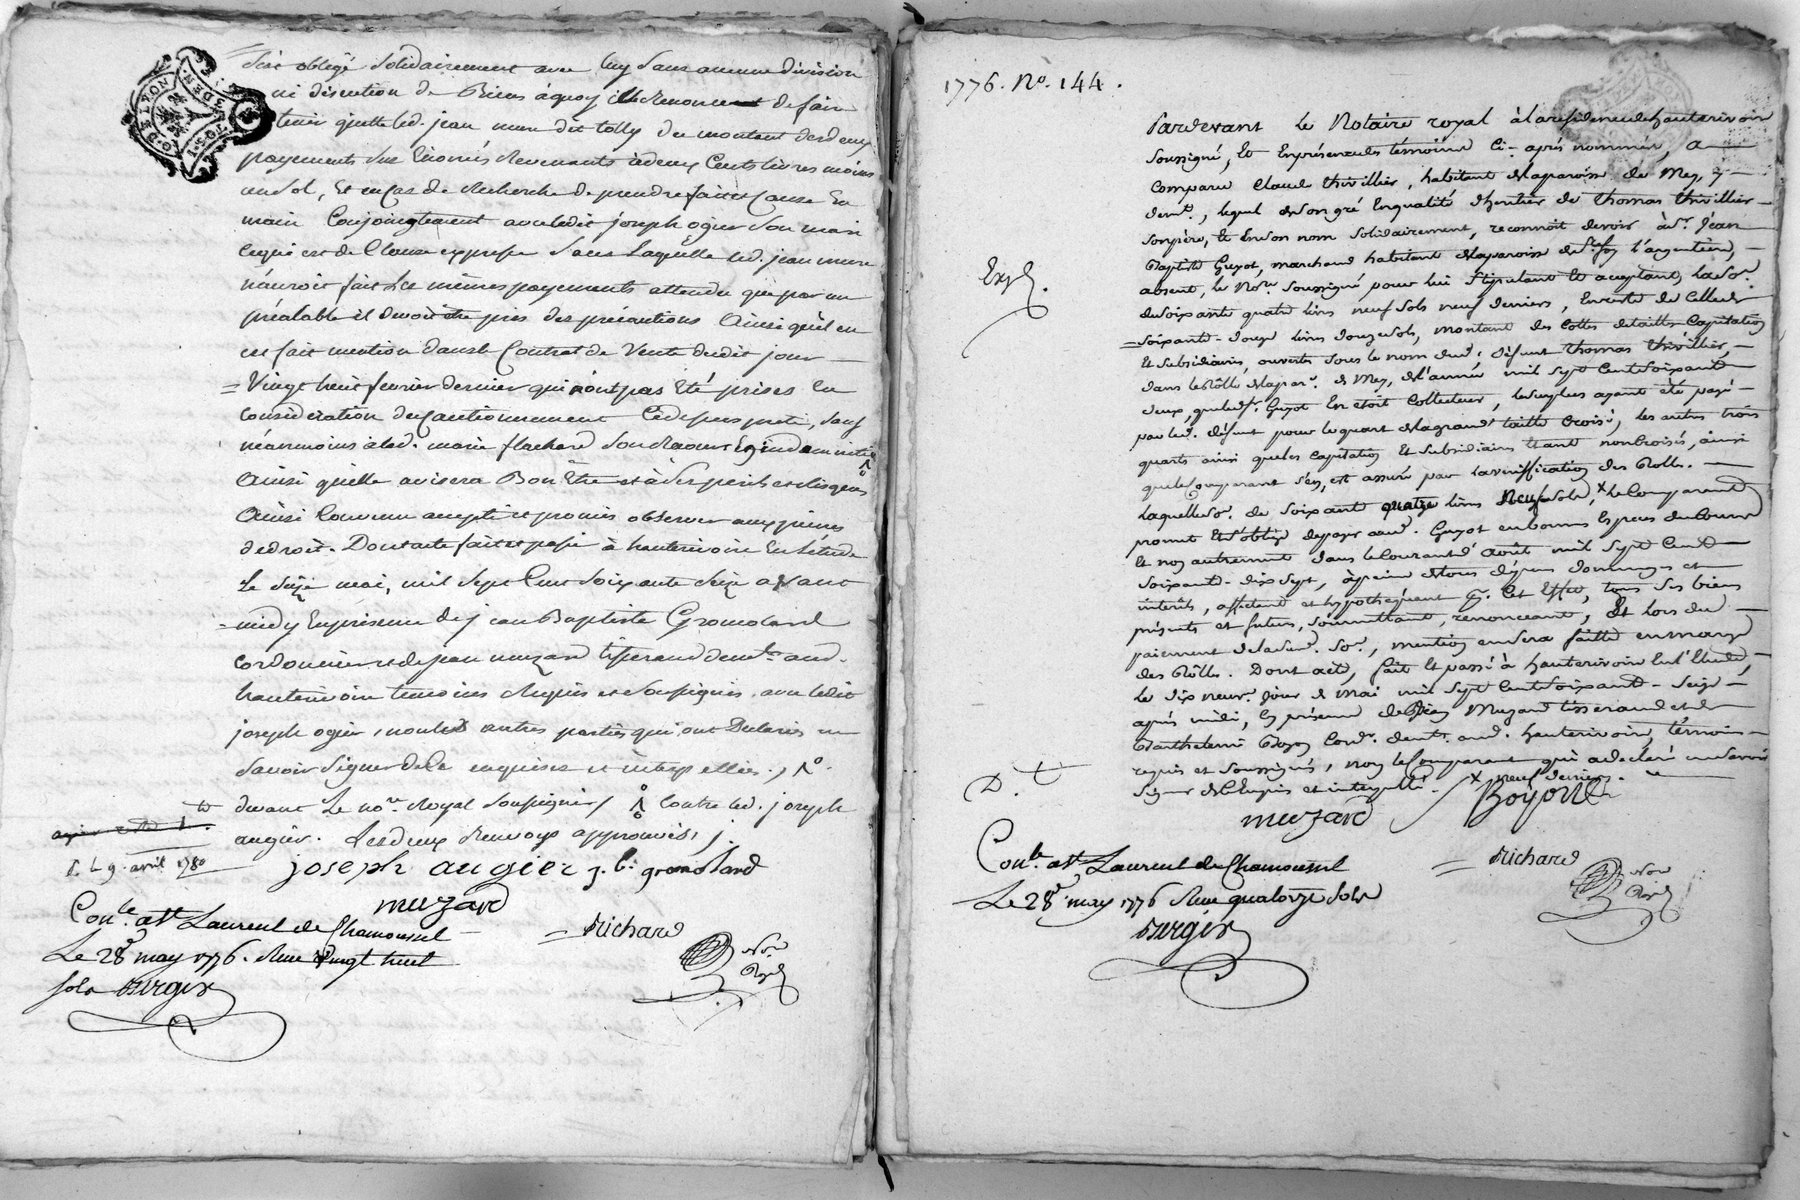 G. DE LYON
soit obligé solidairement avec luy sans aucune division
ni discution de Biens à quoy ils Renoncent de faire
tenir quitte led. jean mure dit tolly du montant desdeux
payements sus Enoncés Revenants à deux Cents livres moins
un sol, Et en cas de Recherche de prendre fait et Cause En
main Conjoingtement avec ledit joseph ogier Son mari
ce qui est de Clause expresse Sans Laquelle led. jean mure
n'auroit fait Les mêmes payements attendu que par un
préalable il devoit être pris des précautions Ainsi qu'il en
est fait mention dans le Contrat de Vente dudit jour
Vingt huit fevrier dernier qui n'ont pas Eté prises En
considération du Cautionnement Cidessus preté, sauf
néanmoins à lad. marie flachard Son Recours Egindemnité
Ainsi qu'elle avisera Bon Etre et à Ses perils et Risques
Ainsi Convenu accepté et promis observer aux peines
de droit. Dont acte fait et passé à hauterivoire En L'étude
Le Seize mai, mil Sept Cent Soixante Seize avant
midy En présence de jean Baptiste Gromolard
cordonnier et de jean muzard tisserand demts. aud.
hauterivoire temoins Requis et Soussignés avec ledit
joseph ogier, non les autres parties qui ont Déclarés ne
Savoir Signer de Ce enquises et interpellées.
devant Le nore. Royal Soussigné / Contre led. joseph
augier. Les deux Renvoys approuvés, j.
L. 9. avril 1780
joseph augier j. b. gromolard
muzard
Conlé. a St. Laurent de Chamousset
Le 28 may 1776. Reçu Vingt huit
sols Burgin
Richard
Nore
Royal
1776. No. 144.
Pardevant le Notaire royal à la residence de hauterivoire
soussigné, Et En présence des témoins Ci-après nommés, a
comparu Claude thivillier, habitant de la paroisse de Meys, y
demt., lequel de Son gré En qualité d'heritier de thomas thivillier
Son père, Et En Son nom Solidairement, reconnoit devoir à Sr. Jean
Baptiste Guyot, marchand habitant de la paroisse de Ste foy l'argentière,
absent, le Nore. Soussigné pour lui stipulant Et acceptant, La Soe.
de soixante quatre livres neuf sols neuf deniers, En reste de Celle de
soixante-douze livres douze sols, montant des Cottes de tailles Capitation
Et Subsidiaires, ouvertes sous le nom dud. défunt thomas thivillier,
dans le Rôlle de la par. de Meys, de l'année mil Sept Cent Soixante
deux, que led. Sr. Guyot En étoit Collecteur, le surplus ayant été payé
par led. défunt pour le quart de la grand' taille Croisé, les autres trois
quarts ainsi que les Capitation Et Subsidiaires Etant non Croisés, ainsi
que le Comparant s'en est assuré par la vérification des Rolles.
Laquelle Soe. de Soixante quatre livres Neuf Sols, x le Comparant
promet Et s'oblige de payer aud. Guyot en bonnes Especes de Cours
Et non autrement dans le Courant d'août mil Sept Cent
Soixante-dix Sept, à peine de tous dépens dommages et
intérêts, affectant et hypothéquant pr. Cet Effet, tous Ses biens
présents et futurs, Soumettant, renonceant, Et lors du
paiement de lad. Soe., mention en Sera faitte en marge
des Rôlles. Dont acte, fait Et passé à hauterivoire En l'Etude,
Le dix neuve. jour de Mai mil Sept Cent Soixante-Seize
après midi, En présence de Jean Muzard tisserand et de
Barthelemi Boyon Cordr. demts. aud. hauterivoire, témoins
requis et Soussignés, non le Comparant qui a déclaré ne Savoir
Signer de Ce Enquis et interpellé. x neuf deniers.
Exp.
D. t
muzard
Boyon
Conlé. a St. Laurent de Chamousset
Le 28 may 1776 Reçu quatorze Sols
Burgin
Richard
Nore
Royal